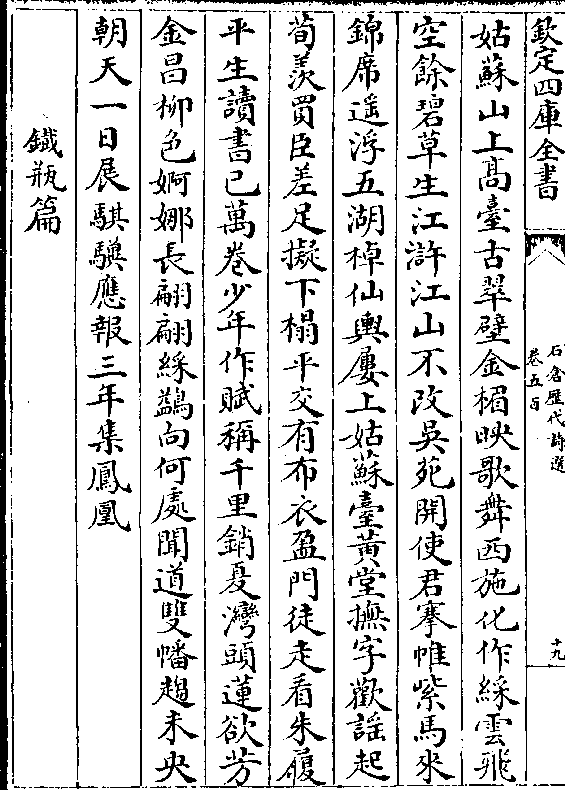 欽定四庫全書
石倉歷代詩選
卷五百
十九
姑蘇山上髙臺古翠壁金楣映歌舞西施化作綵雲飛
空餘碧草生江滸江山不改吳苑開使君搴帷紫馬來
錦席遥浮五湖棹仙輿屢上姑蘇臺黄堂撫字歡謡起
荀羨買臣差足擬下榻平交有布衣盈門徒走看朱履
平生讀書已萬卷少年作賦稱千里銷夏灣頭蓮欲芳
金昌柳色婀娜長翩翩綵鷁向何處聞道雙幡趨未央
朝天一日展騏驥應報三年集鳳凰
鐵瓶篇